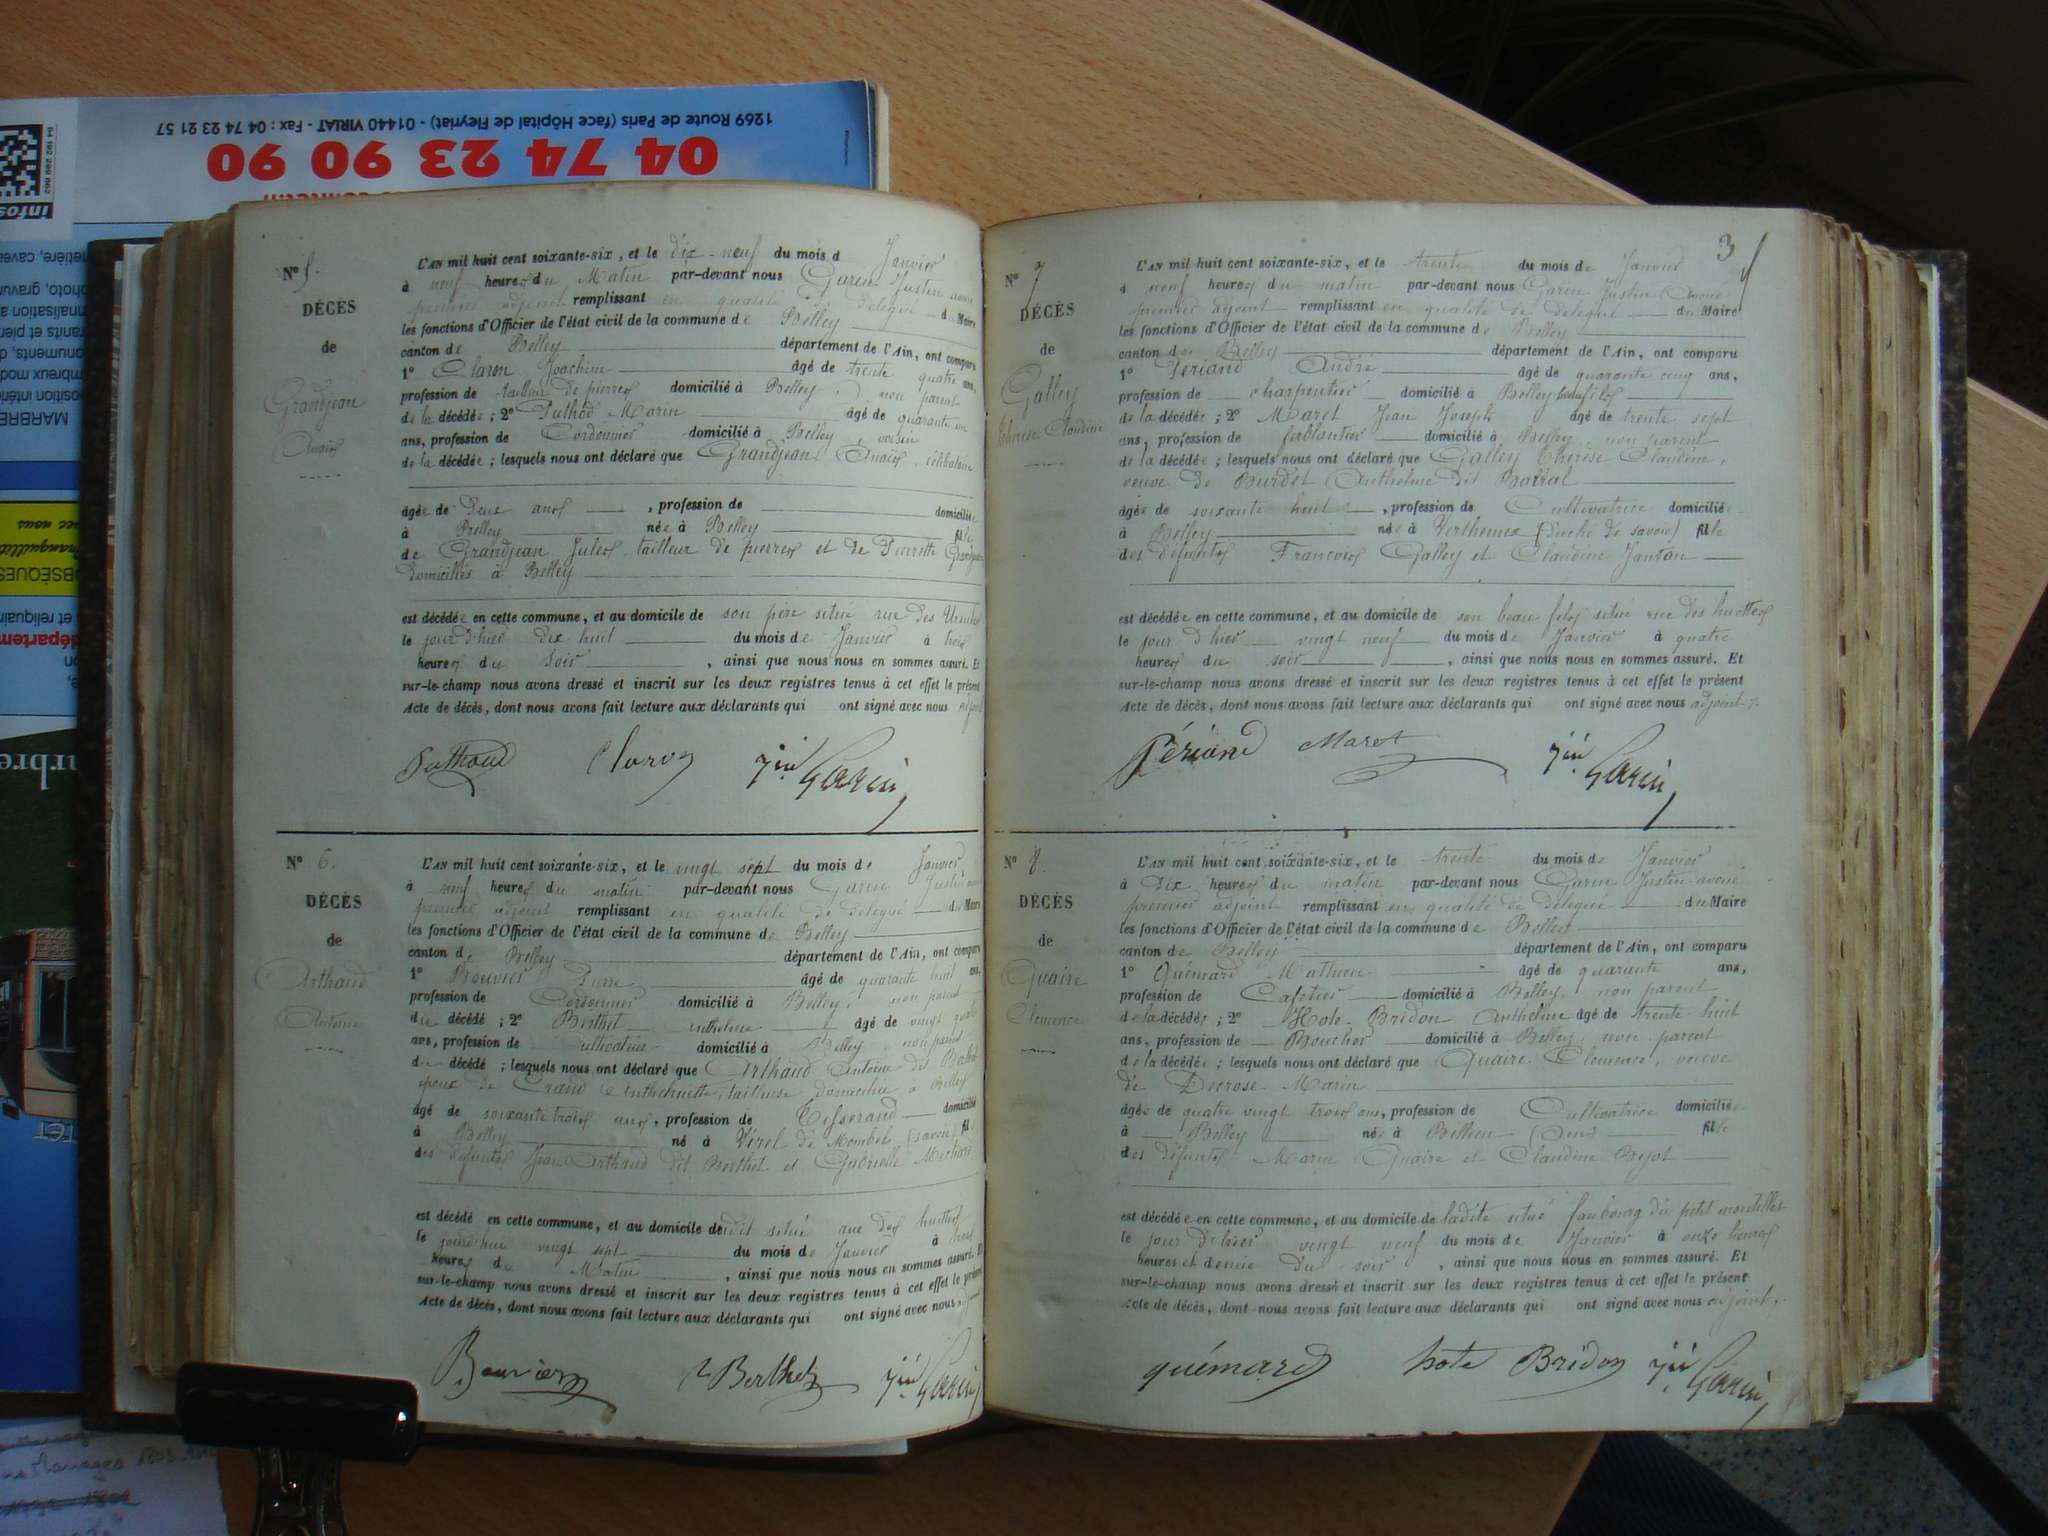 1269 Route de Paris (face Hôpital de Fleyriat) - 01440 VIRIAT - Fax : 04 74 23 21 57
04 74 23 90 90
infos
N° 5.
DÉCÈS
de
Grandjean
Anaïs
L'AN mil huit cent soixante-six, et le dix-neuf du mois d Janvier
à neuf heures du Matin par-devant nous Garin Justin avoué
premier adjoint remplissant en qualité de délégué d. Maire
les fonctions d'Officier de l'état civil de la commune de Belley
canton de Belley département de l'Ain, ont comparu
1° Claron Joachim âgé de trente quatre ans,
profession de tailleur de pierres domicilié à Belley, non parent
de la décédée ; 2° Puthod Marin âgé de quarante un
ans, profession de Cordonnier domicilié à Belley, voisin
de la décédée ; lesquels nous ont déclaré que Grandjean Anaïs, célibataire
âgée de deux ans , profession de domiciliée
à Belley née à Belley fille
de Grandjean Jules, tailleur de pierres et de Pierrette
domiciliés à Belley
est décédée en cette commune, et au domicile de son père situé rue des
le jour d'hier dix huit du mois de Janvier à trois
heures du Soir , ainsi que nous nous en sommes assuré. Et
sur-le-champ nous avons dressé et inscrit sur les deux registres tenus à cet effet le présent
Acte de décès, dont nous avons fait lecture aux déclarants qui ont signé avec nous adjoint
Puthod Claron Jin Garin
N° 6.
DÉCÈS
de
Arthaud
Antoine
L'AN mil huit cent soixante-six, et le vingt sept du mois de Janvier
à neuf heures du matin par-devant nous Garin Justin avoué
premier adjoint remplissant en qualité de délégué du Maire
les fonctions d'Officier de l'état civil de la commune de Belley
canton de Belley département de l'Ain, ont comparu
1° Bouvier Pierre âgé de quarante huit ans,
profession de Cordonnier domicilié à Belley, non parent
du décédé ; 2° Berthet Anthelme âgé de vingt
ans, profession de Cultivateur domicilié à Belley, non parent
du décédé ; lesquels nous ont déclaré que Arthaud Antoine dit
époux de Grand Anthelmette, tailleuse, domiciliée à Belley
âgé de soixante trois ans, profession de Tisserand domicilié
à Belley né à Verel de Mombel (savoie) fils
des défunts Jean Arthaud dit Berthet et Gabrielle
est décédé en cette commune, et au domicile dudit situé rue des huottes
le jourd'hui vingt sept du mois de Janvier à neuf
heures du Matin , ainsi que nous nous en sommes assuré. Et
sur-le-champ nous avons dressé et inscrit sur les deux registres tenus à cet effet le présent
Acte de décès, dont nous avons fait lecture aux déclarants qui ont signé avec nous adjoint
Bouvier Berthet Jin Garin
3
N° 7
DÉCÈS
de
Galley
Thérèse Claudine
L'AN mil huit cent soixante-six, et le trente du mois de Janvier
à neuf heures du matin par-devant nous Garin Justin Avoué
premier adjoint remplissant en qualité de délégué du Maire
les fonctions d'Officier de l'état civil de la commune de Belley
canton de Belley département de l'Ain, ont comparu
1° Periand André âgé de quarante cinq ans,
profession de charpentier domicilié à Belley beau filos
de la décédée ; 2° Maret Jean Joseph âgé de trente sept
ans, profession de ferblantier domicilié à Belley, non parent
de la décédée ; lesquels nous ont déclaré que Galley Thérèse Claudine,
veuve de Burdet Anthelme dit Barral
âgée de soixante huit , profession de Cultivatrice domiciliée
à Belley née à Verthemex (Duché de savoie) fille
des défunts François Galley et Claudine Janton
est décédée en cette commune, et au domicile de son beau filos situé rue des huottes
le jour d'hier vingt neuf du mois de Janvier à quatre
heures du soir , ainsi que nous nous en sommes assuré. Et
sur-le-champ nous avons dressé et inscrit sur les deux registres tenus à cet effet le présent
Acte de décès, dont nous avons fait lecture aux déclarants qui ont signé avec nous adjoint
Périand Maret Jin Garin
N° 8.
DÉCÈS
de
Quaire
Clémence
L'AN mil huit cent soixante-six, et le trente du mois de Janvier
à dix heures du matin par-devant nous Garin Justin avoué
premier adjoint remplissant en qualité de délégué du Maire
les fonctions d'Officier de l'état civil de la commune de Belley
canton de Belley département de l'Ain, ont comparu
1° Quémard Mathieu âgé de quarante ans,
profession de Cafetier domicilié à Belley, non parent
de la décédée ; 2° Hote-Bridon Anthelme âgé de trente huit
ans, profession de Boucher domicilié à Belley, non parent
de la décédée ; lesquels nous ont déclaré que Quaire Clémence, veuve
de Decrose Marin
âgée de quatre vingt trois ans, profession de Cultivatrice domiciliée
à Belley née à Billieu (Ain) fille
des défunts Marin Quaire et Claudine Bejot
est décédée en cette commune, et au domicile de ladite situé faubourg du petit
le jour d'hier vingt neuf du mois de Janvier à onze heures
heures et demie du soir , ainsi que nous nous en sommes assuré. Et
sur-le-champ nous avons dressé et inscrit sur les deux registres tenus à cet effet le présent
Acte de décès, dont nous avons fait lecture aux déclarants qui ont signé avec nous adjoint
quémard hote Bridon Jin Garin